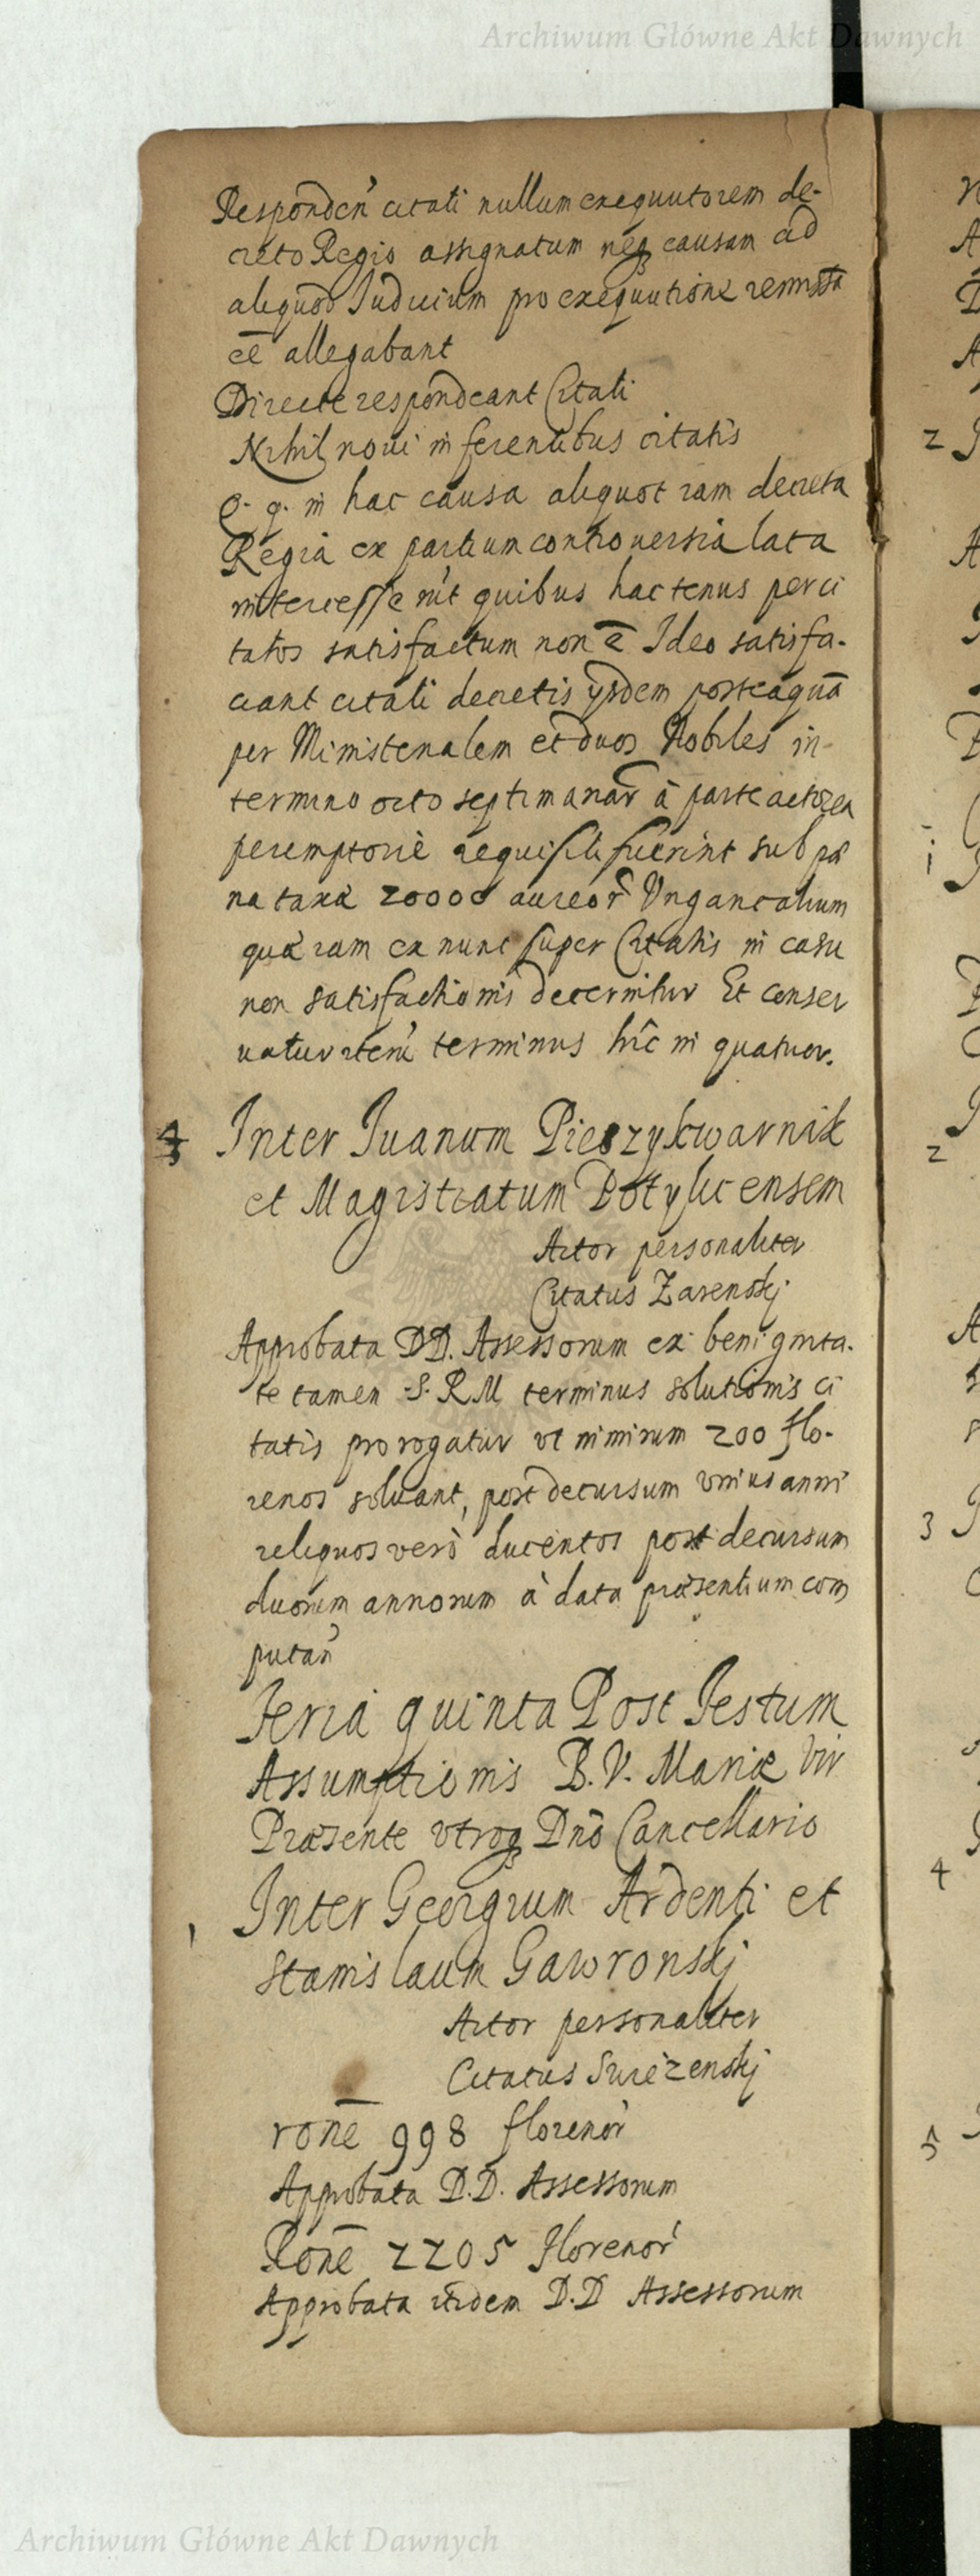 Archiwum Główne Akt Dawnych
Respondeñ citati nullum exequutorem de-
creto Regio assignatum neq causam ad
aliquod Iudicium pro exequutione remissa
cē allegabant
Directe respondeant Citati
Nihil novi inferentibus citatis
Q. q. in hac causa aliquot iam decreta
Regia ex partium controversia lata
intercesserīt quibus hactenus per ci
tatos satisfactum non ē Ideo satisfa-
ciant citati decretis ijsdem posteaquā
per Ministerialem et duos Nobiles in
termino octo septimanar̃ à parte actorea
peremptorie requisiti fuerint sub pœ
na taxæ 20000 aureor̃ Vngaricalium
quæ iam ex nunc super Citatis in casu
non satisfactionis decernitur Et conser
vatur itenī terminus hīc in quatuor.
4 Inter Iuanum Pieczykwarnik
et Magistratum Potylicensem
Actor personaliter
Citatus Zarenskj
Approbata DD. Assessorum ex benignita-
te tamen S. R M terminus solutionis ci
tatis prorogatur vt nimirum 200 flo-
renos soluant, post decursum vnius anni
reliquos verò ducentos post decursum
duorum annorum à data præsentium com
putañ
Feria quinta Post Festum
Assumptionis B. V. Mariæ Vir
Præsente vtroq Dnõ Cancellario
1 Inter Georgium Ardenti et
Stanislaum Gawronskj
Actor personaliter
Citatus Swiezenskj
ronē 998 florenor̃
Approbata D.D. Assessorum
Ronē 2205 Florenor̃
Approbata itidem D.D Assessorum
Archiwum Główne Akt Dawnych